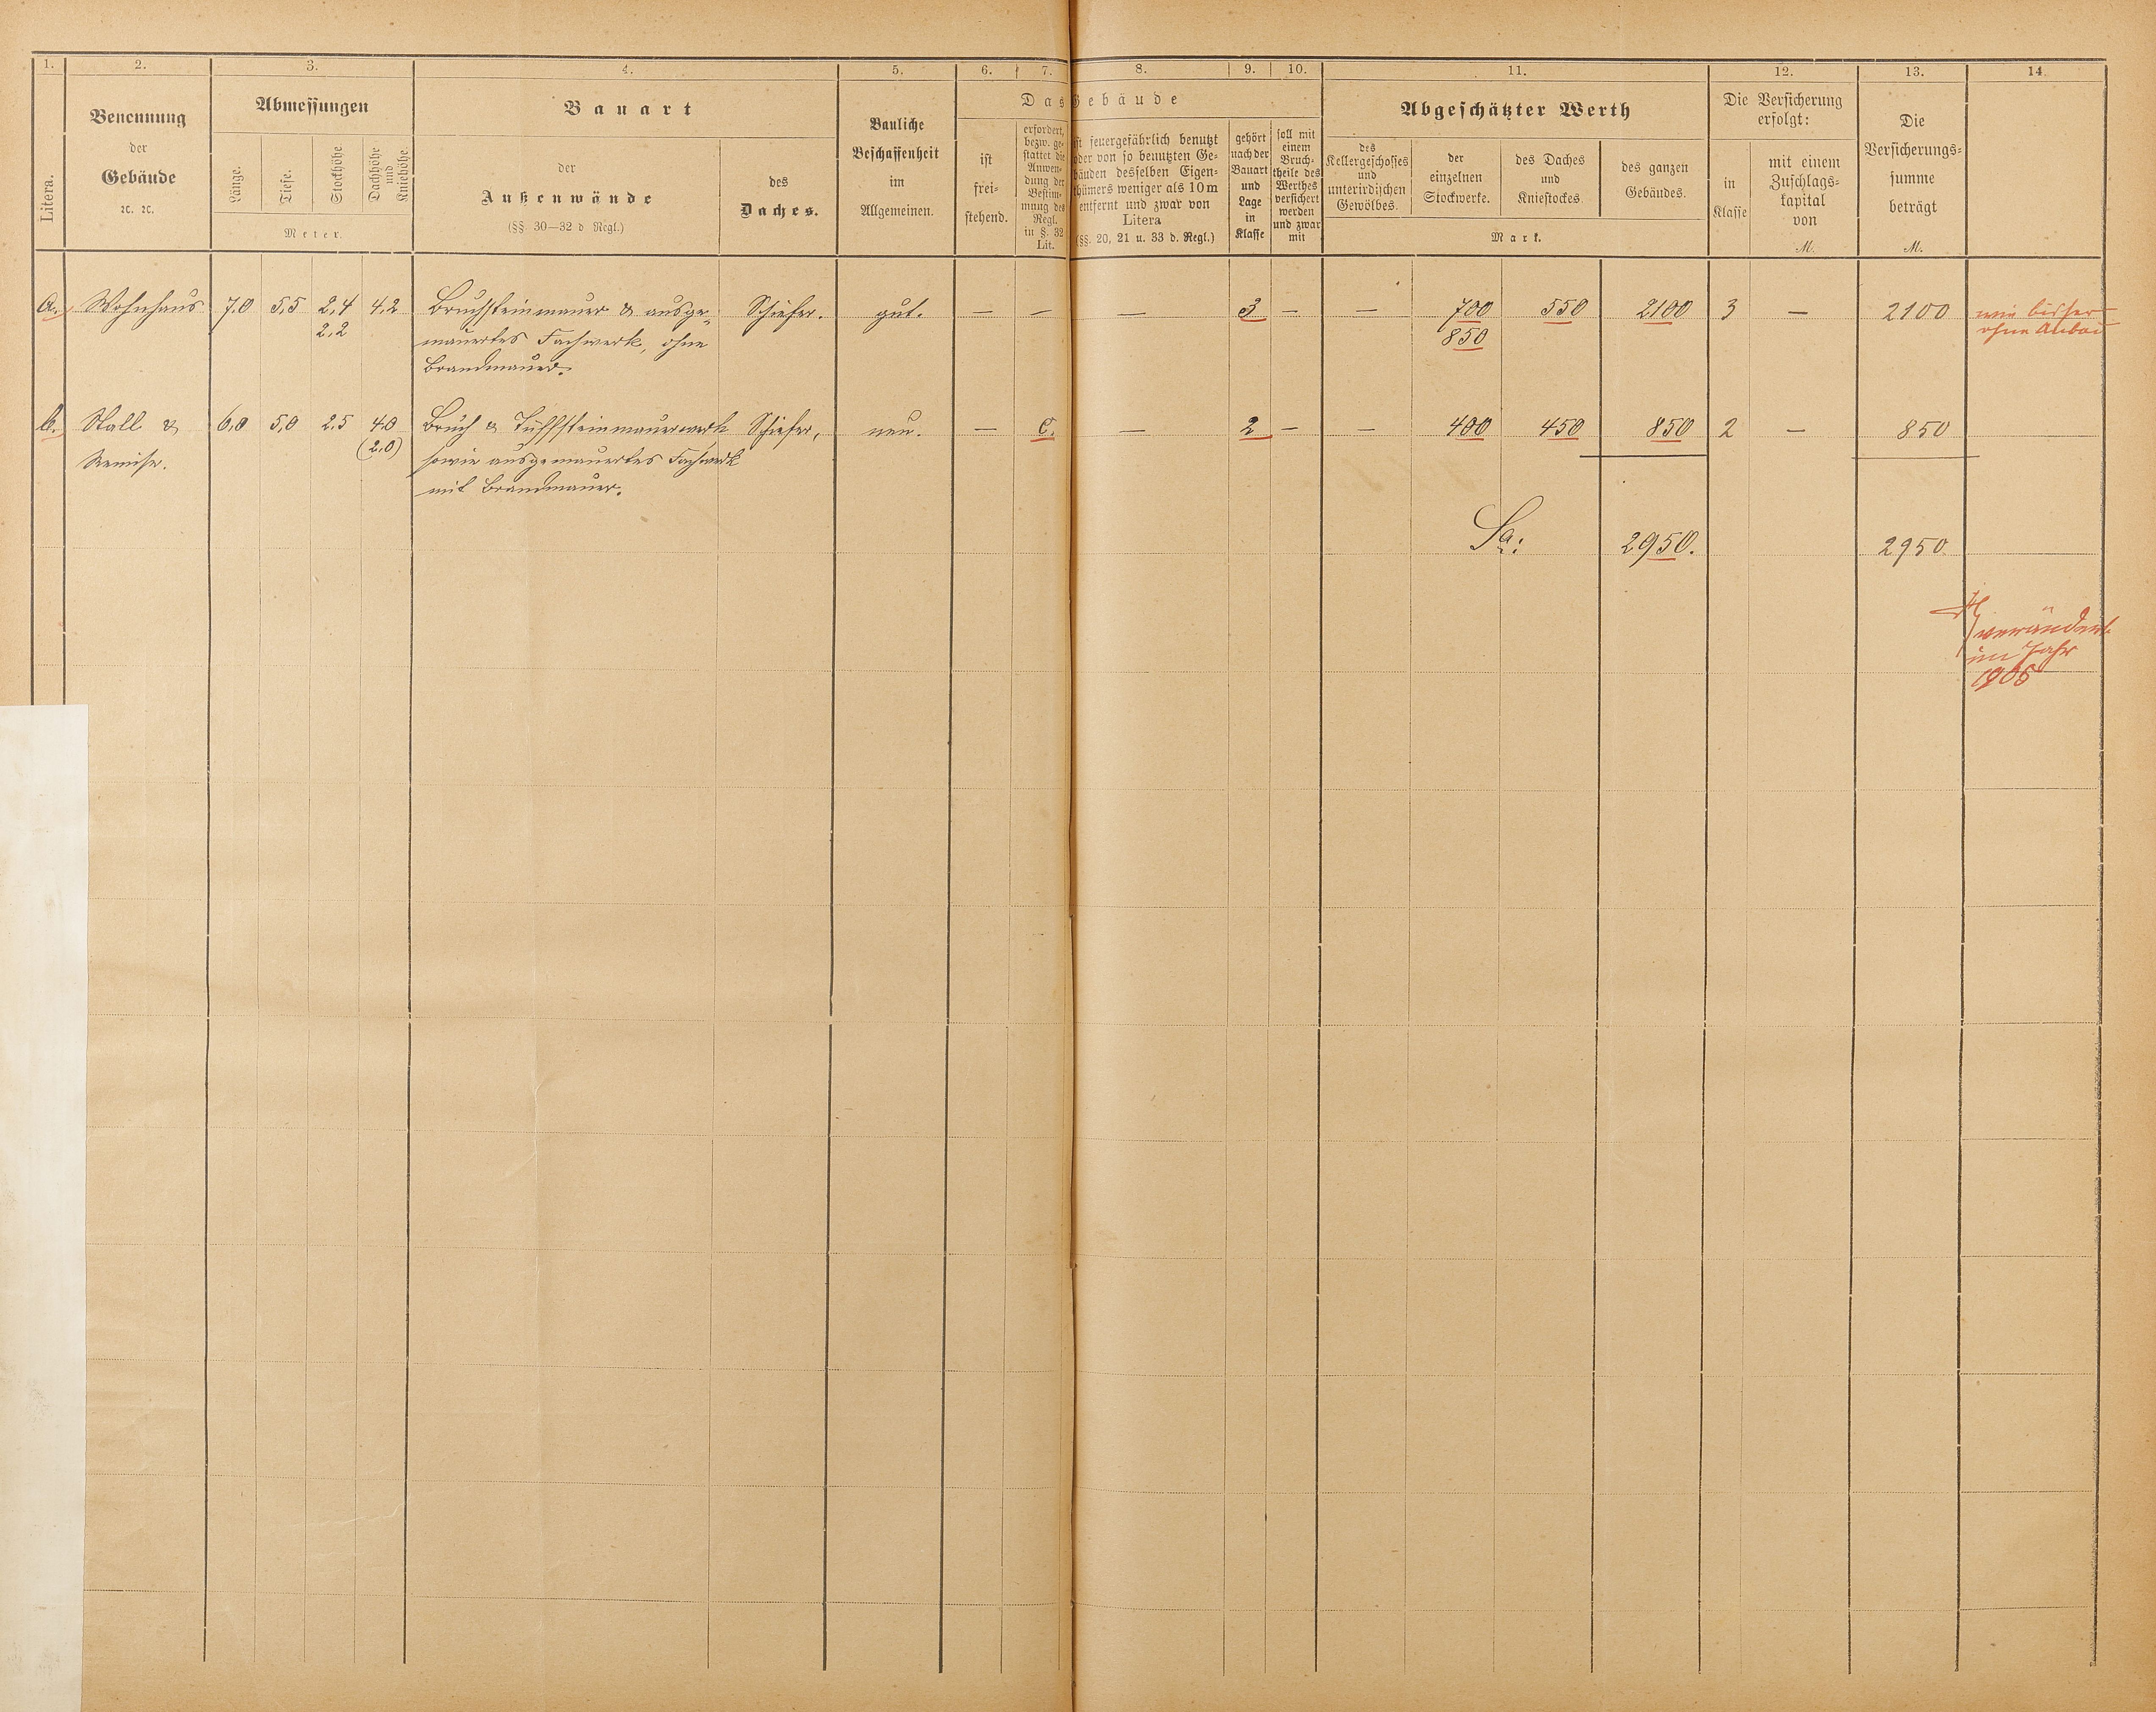 1. 2. 3. 4. 5. 6. 7. 8. 9. 10. 11. 12. 13. 14.
Litera.
Benennung
der
Gebäude
ꝛc. ꝛc.
Abmessungen
Länge.
Tiefe.
Stockhöhe
Dachhöhe
und
Kniehöhe.
Meter.
Bauart
der
Außenwände
(§§. 30—32 d Regl.)
des
Daches.
Bauliche
Beschaffenheit
im
Allgemeinen.
Das Gebäude
ist
frei-
stehend.
erfordert,
bezw. ge-
stattet die
Anwen-
dung der
Bestim-
mung des
Regl.
in §. 32
Lit.
ist feuergefährlich benutzt
oder von so benutzten Ge-
bäuden desselben Eigen-
thümers weniger als 10 m
entfernt und zwar von
Litera
(§§. 20, 21 u. 33 d. Regl.)
gehört
nach der
Bauart
und
Lage
in
Klasse
soll mit
einem
Bruch-
theile des
Werthes
versichert
werden
und zwar
mit
Abgeschätzter Werth
des
Kellergeschosses
und
unterirdischen
Gewölbes.
der
einzelnen
Stockwerke.
des Daches
und
Kniestockes.
des ganzen
Gebäudes.
Mark.
Die Versicherung
erfolgt:
in
Klasse
mit einem
Zuschlags-
kapital
von
M.
Die
Versicherungs-
summe
beträgt
M.
a. Wohnhaus 7,0 5,5 2,4 4,2 Bruchsteinmauer & ausge- Schiefer. gut. — — — 3 — — 700 550 2100 3 — 2100 wie bisher
2,2 mauertes Fachwerk, ohne 850 ohne Anbau
Brandmauer.
b. Stall & 6,0 5,0 2,5 4,0 Bruch & Tuffsteinmauerwerk Schiefer, neu. — C. — 2 — — 400 450 850 2 — 850
Remise. (2,0) sowie ausgemauertes Fachwerk
mit Brandmauer.
Sa: 2950. 2950.
verändert
im Jahr
1906